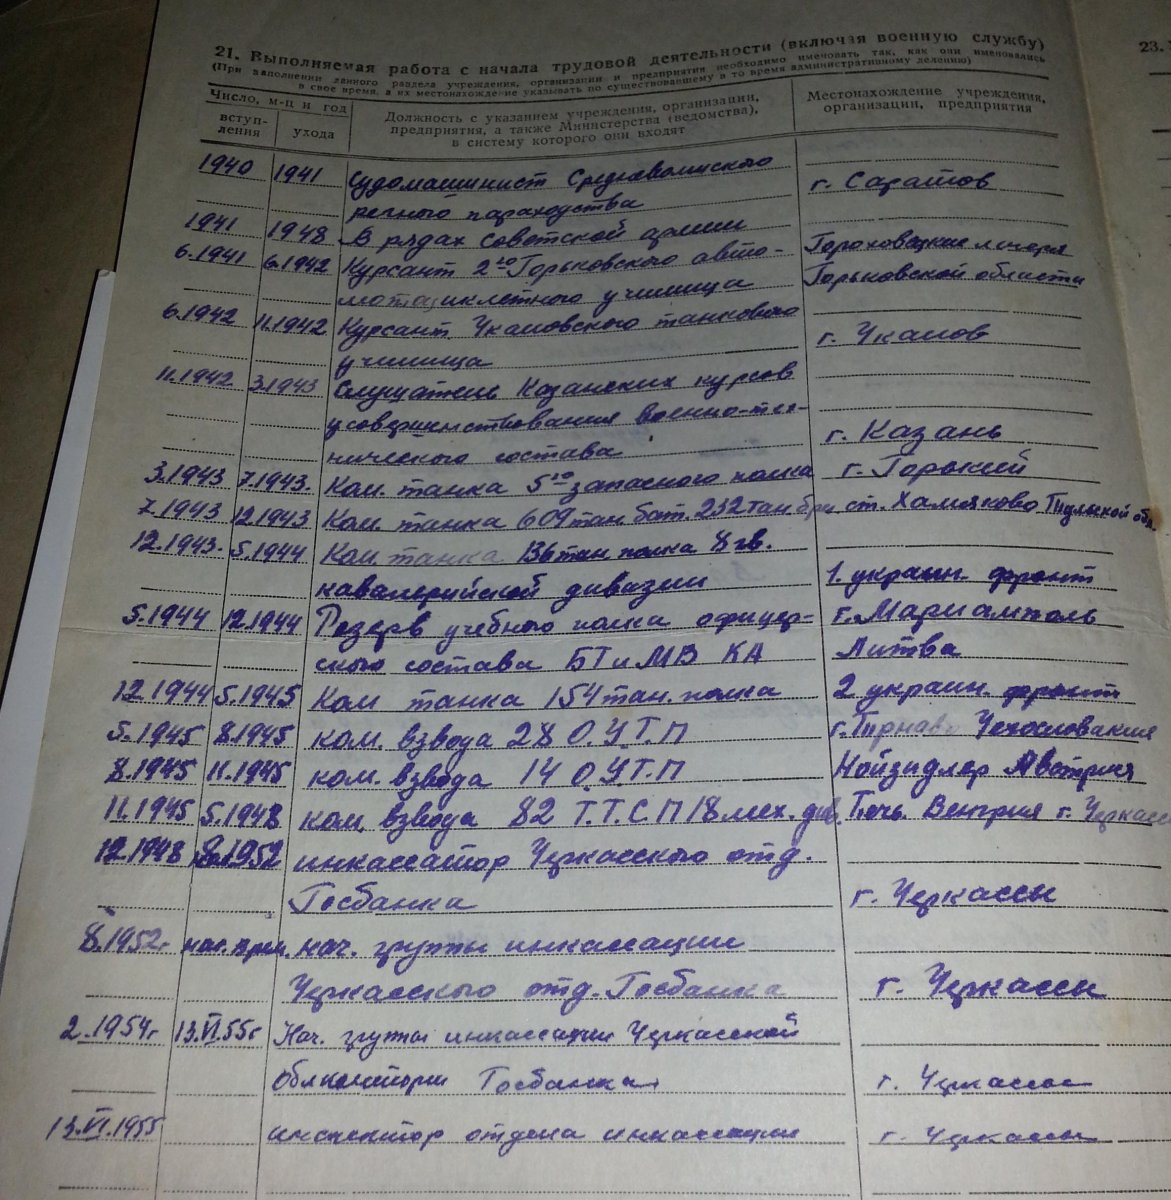 21. Выполняемая работа с начала трудовой деятельности (включая военную службу)
(При заполнении данного раздела учреждения, организации и предприятия необходимо именовать так, как они именовались
в свое время, а их местонахождение указывать по существовавшему в то время административному делению)
Число, м-ц и год
вступ-
ления
ухода
Должность с указанием учреждения, организации,
предприятия, а также Министерства (ведомства),
в систему которого они входят
Местонахождение учреждения,
организации, предприятия
23.
1940 1941 Судомашинист Средневолжского
речного пароходства г. Саратов
1941 1948 В рядах Советской армии
6.1941 6.1942 Курсант 2го Горьковского авто- Гороховецкие лагеря
мотоциклетного училища Горьковской области
6.1942 11.1942 Курсант Чкаловского танкового
училища г. Чкалов
11.1942 3.1943 Слушатель Казанских курсов
усовершенствования военно-тех-
нического состава г. Казань
3.1943 7.1943. Ком. танка 5го запасного полка г. Горький
7.1943 12.1943 Ком. танка 609 тан. бат. 232 тан. бри. ст. Хомяково Тульской обл.
12.1943. 5.1944 Ком. танка 136 тан полка 8 гв.
кавалерийской дивизии 1. украин. фронт
5.1944 12.1944 Резерв учебного полка офицер- г. Мариамполь
ского состава БТ и МВ КА Литва
12.1944 5.1945 Ком танка 154 тан. полка 2 украин. фронт
5.1945 8.1945 ком. взвода 28 О.У.Т.П г. Тирнава Чехословакия
8.1945 11.1945 ком. взвода 14 О.У.Т.П Нойзидлер Австрия
11.1945 5.1948 ком. взвода 82 Т.Т.С.П 18 мех. див. Печь Венгрия г. Черкассы
12.1948 8.1952 инкассатор Черкасского отд.
Госбанка г. Черкассы
8.1952г наст. врем. нач. группы инкассации
Черкасского отд. Госбанка г. Черкассы
2.1954г 13.VI.55г Нач. группы инкассации Черкасской
Облконторы Госбанка г. Черкассы
13.VI.1955 инспектор отдела инкассации г. Черкассы